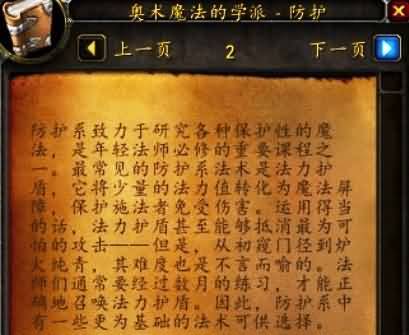 奥术魔法的学派 - 防护
上一页 2 下一页
防护系致力于研究各种保护性的魔
法，是年轻法师必修的重要课程之
一。最常见的防护系法术是法力护
盾，它将少量的法力值转化为魔法屏
障，保护施法者免受伤害。运用得当
的话，法力护盾甚至能够抵消最为可
怕的攻击——但是，从初窥门径到炉
火纯青，其难度也是不言而喻的。法
师们通常要经过数月的练习，才能正
确地召唤法力护盾。因此，防护系中
有一些更为基础的法术可供选择。